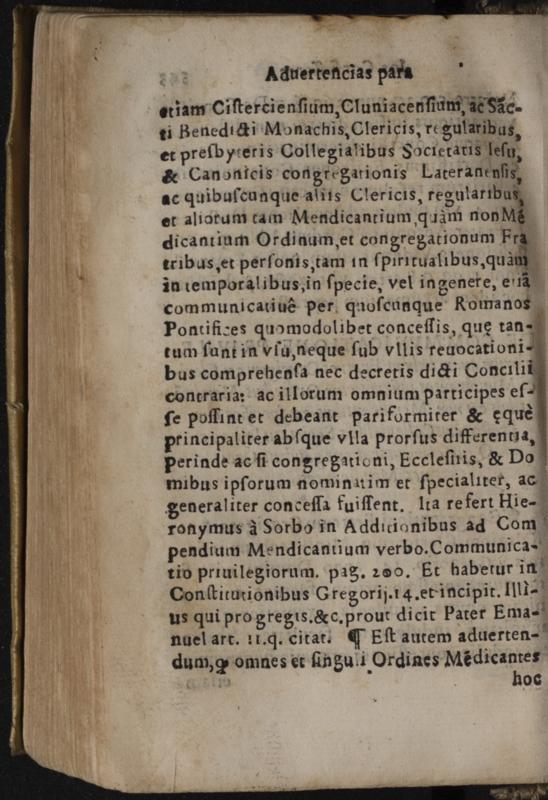 Aduertencias para
etiam Ciſtercienſium, Cluniacenſium, ac Sãc-
ti Benedicti Monachis, Clericis, regularibus,
et presbyteris Collegialibus Societatis Ieſu,
& Canonicis congregationis Lateranenſis,
ac quibuſcunque aliis Clericis, regularibus,
et aliorum tam Mendicantium, quàm non Mẽ
dicantium Ordinum, et congregationum Fra
tribus, et perſonis, tam in ſpiritualibus, quàm
in temporalibus, in ſpecie, vel ingenere, etiã
communicatiuè per quoſcunque Romanos
Pontifices quomodolibet conceſſis, quę tan-
tum ſunt in vſu, neque ſub vllis reuocationi-
bus comprehenſa nec decretis dicti Concilii
contraria: ac illorum omnium participes eſ-
ſe poſſint et debeant pariformiter & ęquè
principaliter abſque vlla prorſus differentia,
perinde ac ſi congregationi, Eccleſiis, & Do
mibus ipſorum nominatim et ſpecialiter, ac
generaliter conceſſa fuiſſent. Ita refert Hie-
ronymus à Sorbo in Additionibus ad Com
pendium Mendicantium verbo. Communica-
tio priuilegiorum. pag. 200. Et habetur in
Conſtitutionibus Gregorij. 14. et incipit. Illi-
us qui pro gregis. &c. prout dicit Pater Ema-
nuel art. 11. q. citat. ¶ Eſt autem aduerten-
dum, ꝙ omnes et ſinguli Ordines Mẽdicantes
hoc